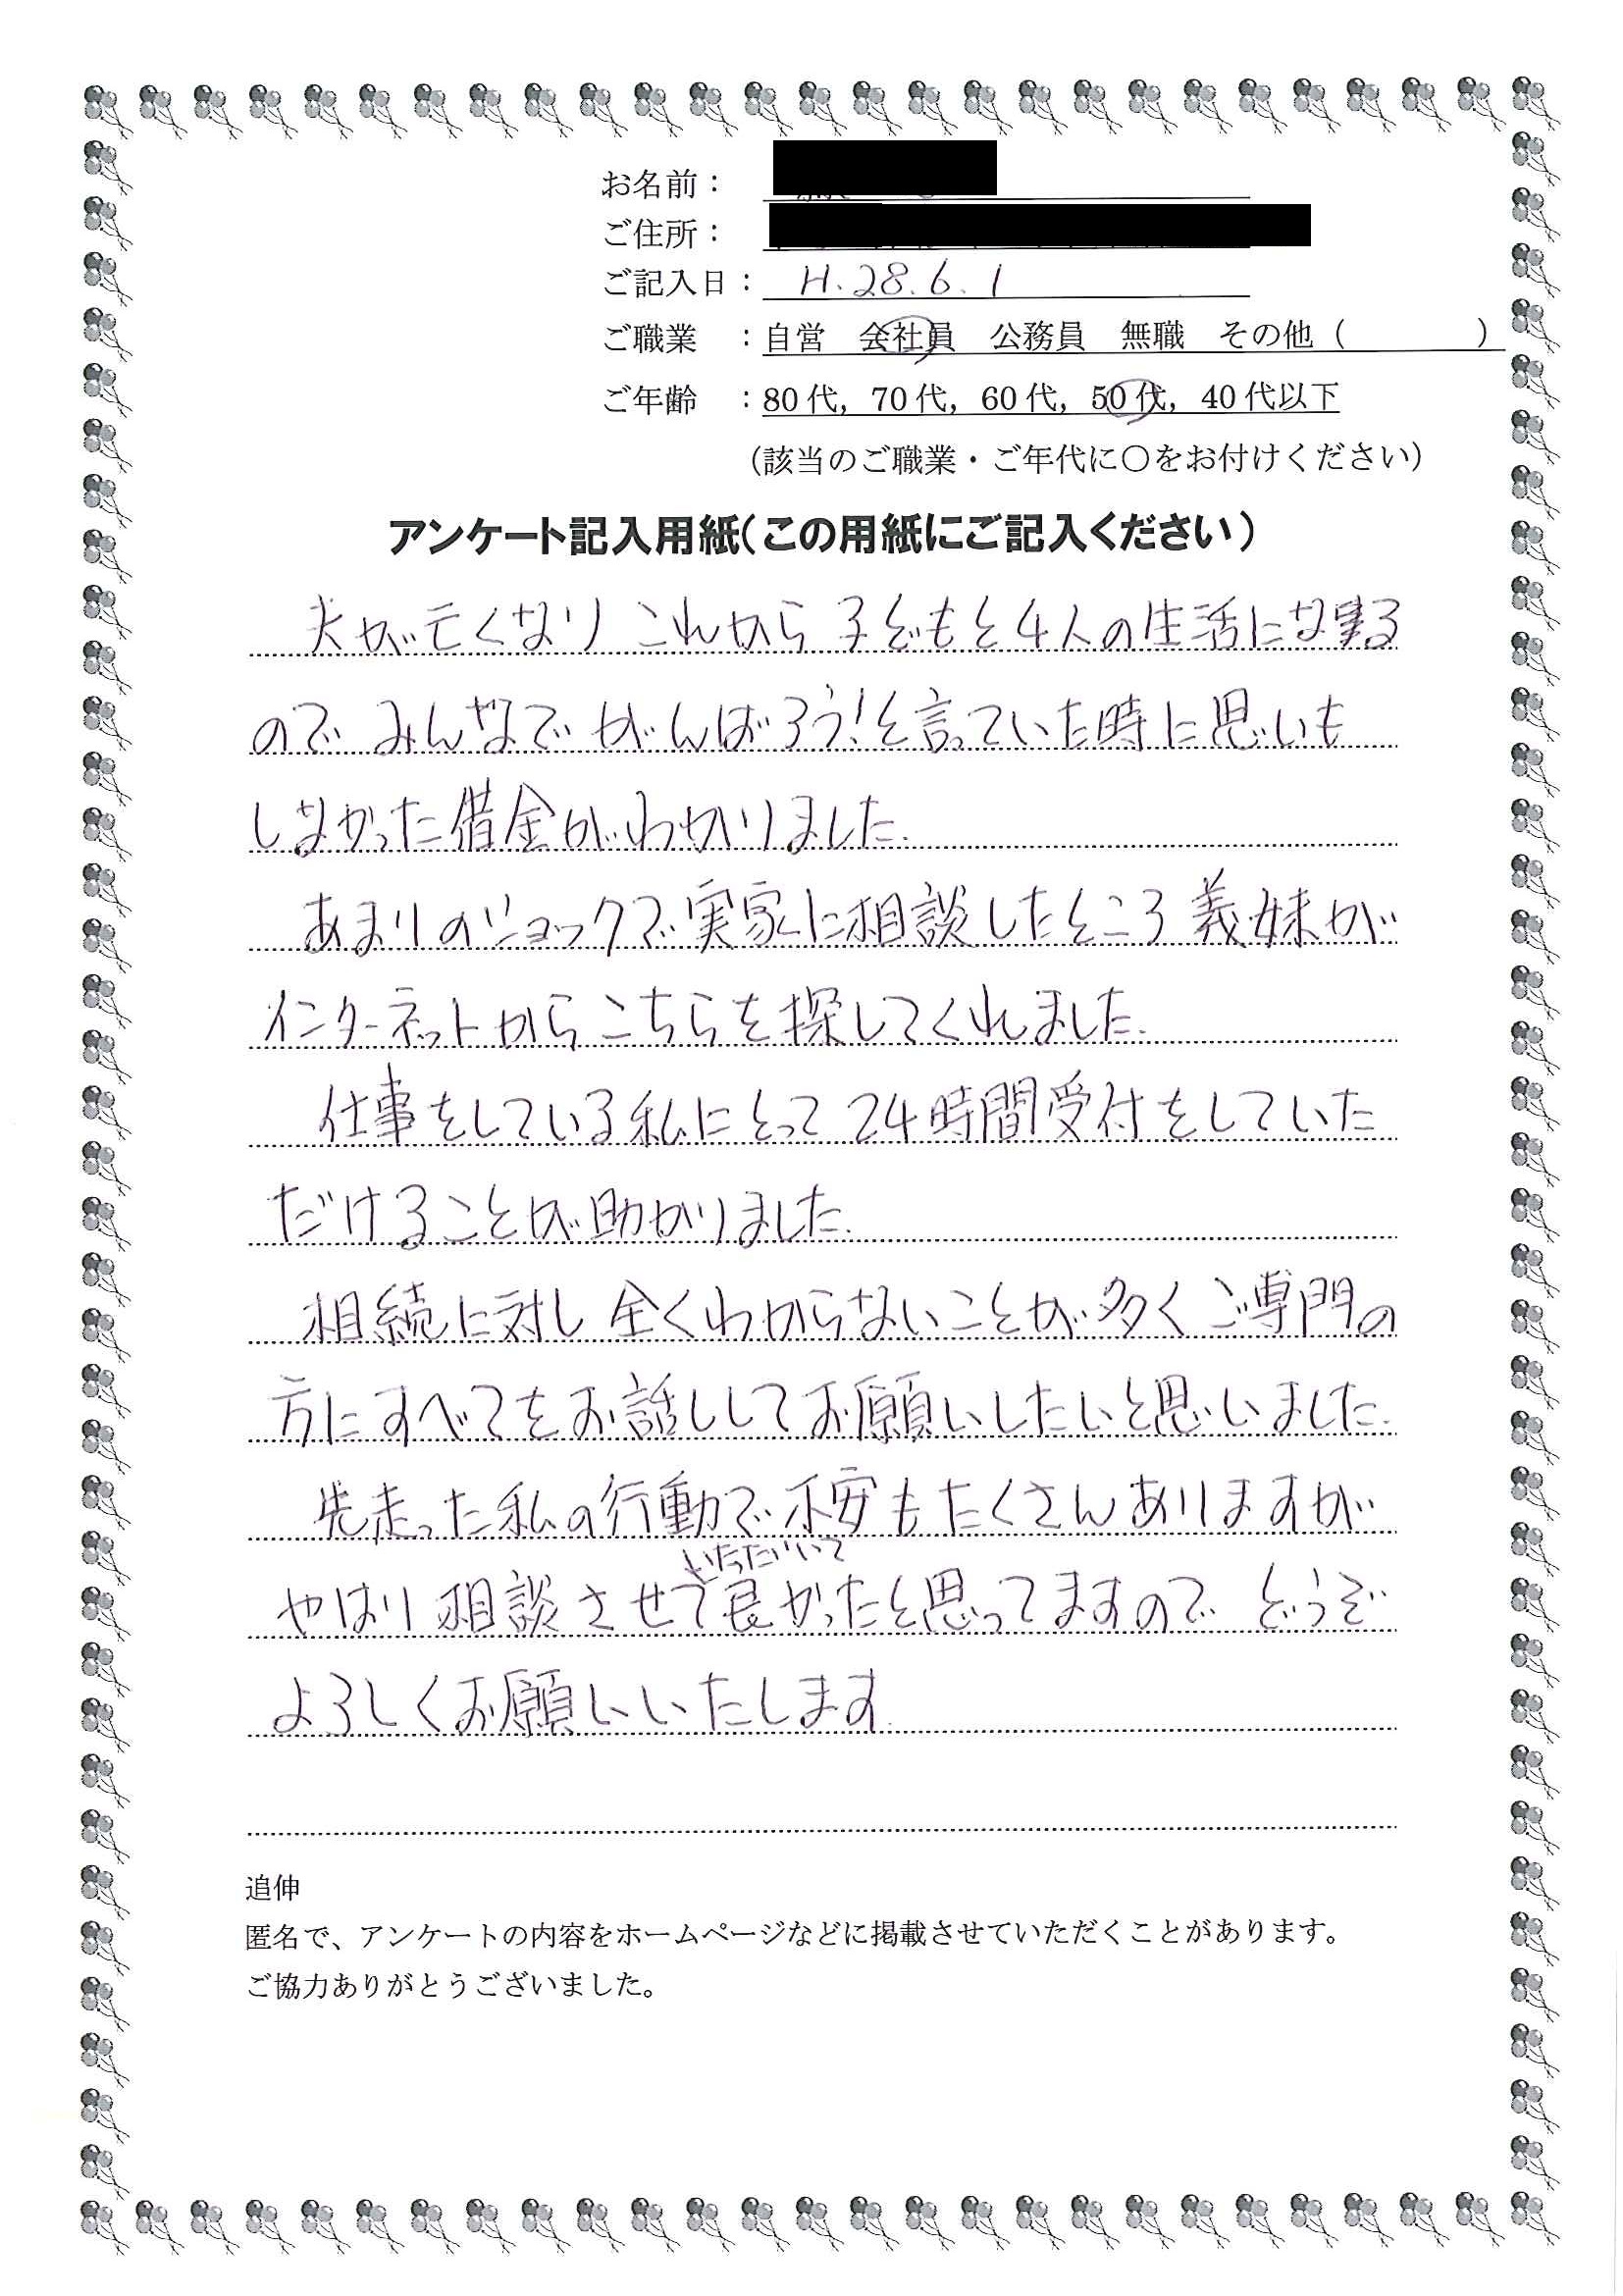 お名前：
ご住所：
ご記入日： H.28.6.1
ご職業　：自営　会社員　公務員　無職　その他（　　　　）
ご年齢　：80代，70代，60代，50代，40代以下
（該当のご職業・ご年代に〇をお付けください）
アンケート記入用紙（この用紙にご記入ください）
夫が亡くなり これから 子どもと4人の生活になる
ので みんなで がんばろう！と言っていた時に思いも
しなかった借金がわかりました.
あまりのショックで実家に相談したところ 義妹が
インターネットからこちらを探してくれました.
仕事をしている私にとって 24時間受付をしていた
だけることが助かりました.
相続に対し 全くわからないことが多く ご専門の
方にすべてをお話ししてお願いしたいと思いました.
先走った私の行動で不安もたくさんありますが
いただいいて
やはり 相談させて良かったと思ってますので どうぞ
よろしくお願いいたします.
追伸
匿名で、アンケートの内容をホームページなどに掲載させていただくことがあります。
ご協力ありがとうございました。